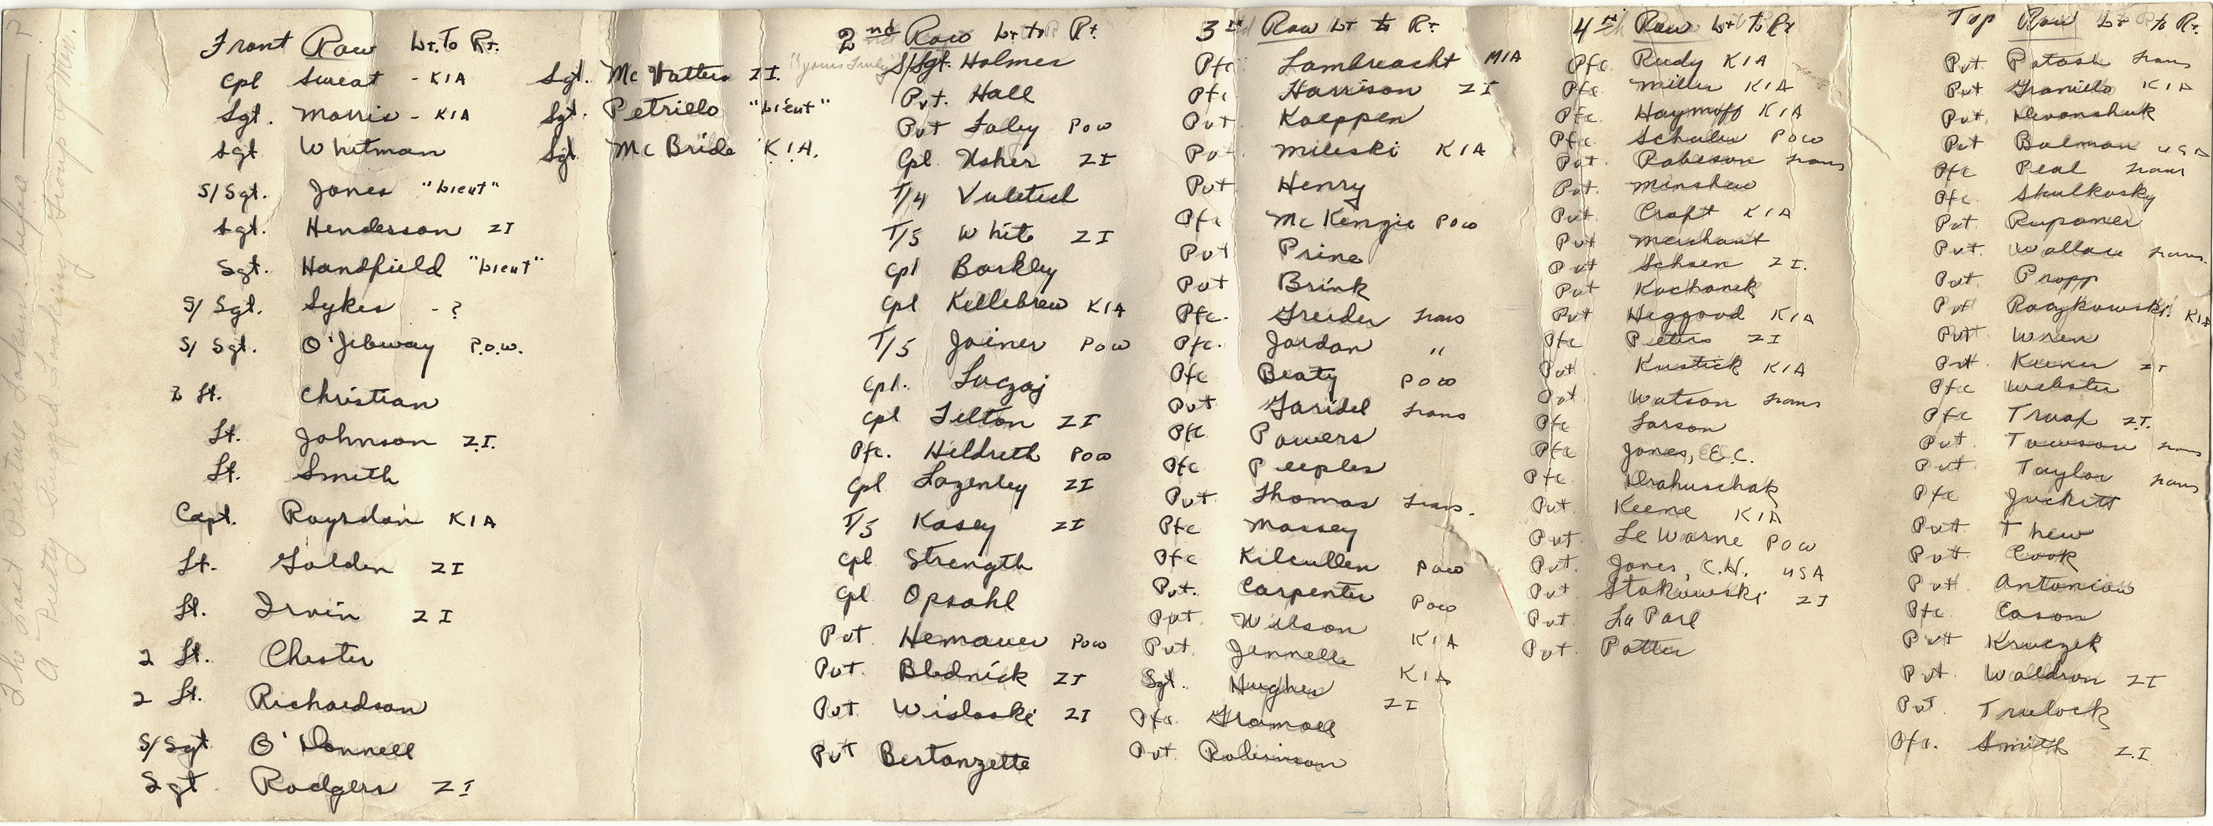 The Last Picture Taken before
A Pretty Rugged Looking Group of Men.
Front Row Lt. To Rt.
Cpl Sweat - KIA
Sgt. Morris - KIA
Sgt Whitman
S/Sgt. Jones "Lieut"
Sgt. Henderson ZI
Sgt. Handfield "Lieut"
S/Sgt. Sykes - ?
S/Sgt. O'Jibway P.O.W.
2 Lt. Christian
Lt. Johnson Z.I.
Lt. Smith
Capt. Roysdon KIA
Lt. Golden ZI
Lt. Irvin ZI
2 Lt. Chester
2 Lt. Richardson
S/Sgt O'Donnell
Sgt Rodgers ZI
Sgt. McVatters Z.I.
Sgt. Petrillo "Lieut"
Sgt. McBride K.I.A.
2nd Row Lt to Rt.
"yours Truly" S/Sgt. Holmes
Pvt. Hall
Pvt Foley POW
Cpl Usher ZI
T/4 Vuletich
T/5 White ZI
Cpl Barkley
Cpl Killebrew KIA
T/5 Joiner POW
Cpl. Luczaj
Cpl Tilton ZI
Pfc. Hildreth POW
Cpl Lazenby ZI
T/5 Kasey ZI
Cpl Strength
Cpl Opsahl
Pvt. Hemauer POW
Pvt. Blednick ZI
Pvt. Wisloski ZI
Pvt Bertanzette
3rd Row Lt to Rt.
Pfc Lambreacht MIA
Pfc Harrison ZI
Pvt Koeppen
Pvt Mileski KIA
Pvt Henry
Pfc McKenzie POW
Pvt Prine
Pvt Brink
Pfc. Greider trans
Pfc. Jordan "
Pfc Beaty POW
Pvt Garidel trans
Pfc Powers
Pfc Peeples
Pvt. Thomas trans.
Pfc Massey
Pfc Kilcullen POW
Pvt. Carpenter POW
Pvt. Wilson KIA
Pvt. Jennelle KIA
Sgt. Hughes ZI
Pfc. Gramoll
Pvt Robinson
4th Row Lt to Rt
Pfc. Rudy KIA
Pfc. Miller KIA
Pfc. Haymoff KIA
Pfc. Schuler POW
Pvt. Robeson trans
Pvt. Minshew
Pvt. Craft KIA
Pvt Merchant
Pvt Schoen Z.I.
Pvt Kochanek
Pvt Heggood KIA
Pfc Peters ZI
Pvt. Kustick KIA
Pvt Watson trans
Pfc Larson
Pfc Jones, E.C.
Pfc Drahuschak
Pvt Keene KIA
Pvt. LeWarne POW
Pvt. Jones, C.H. USA
Pvt Stokowski ZI
Pvt. LaPorl
Pvt. Potter
Top Row Lt to Rt.
Pvt Potash trans
Pvt Graniello KIA
Pvt Devonshuk
Pvt Bolman USA
Pfc Peal trans
Pfc. Shulkosky
Pvt. Rupamer
Pvt. Wallace trans.
Pvt. Propp
Pvt Roczkowski KIA
Pvt Wren
Pvt Keener ZI
Pfc Webster
Pfc Truax Z.I.
Pvt. Towson trans
Pvt. Taylor trans
Pfc Juckitt
Pvt Thew
Pvt. Cook
Pvt Antoniow
Pfc. Eason
Pvt Kruczek
Pvt. Waldron ZI
Pvt. Trulock
Pfc. Smith Z.I.